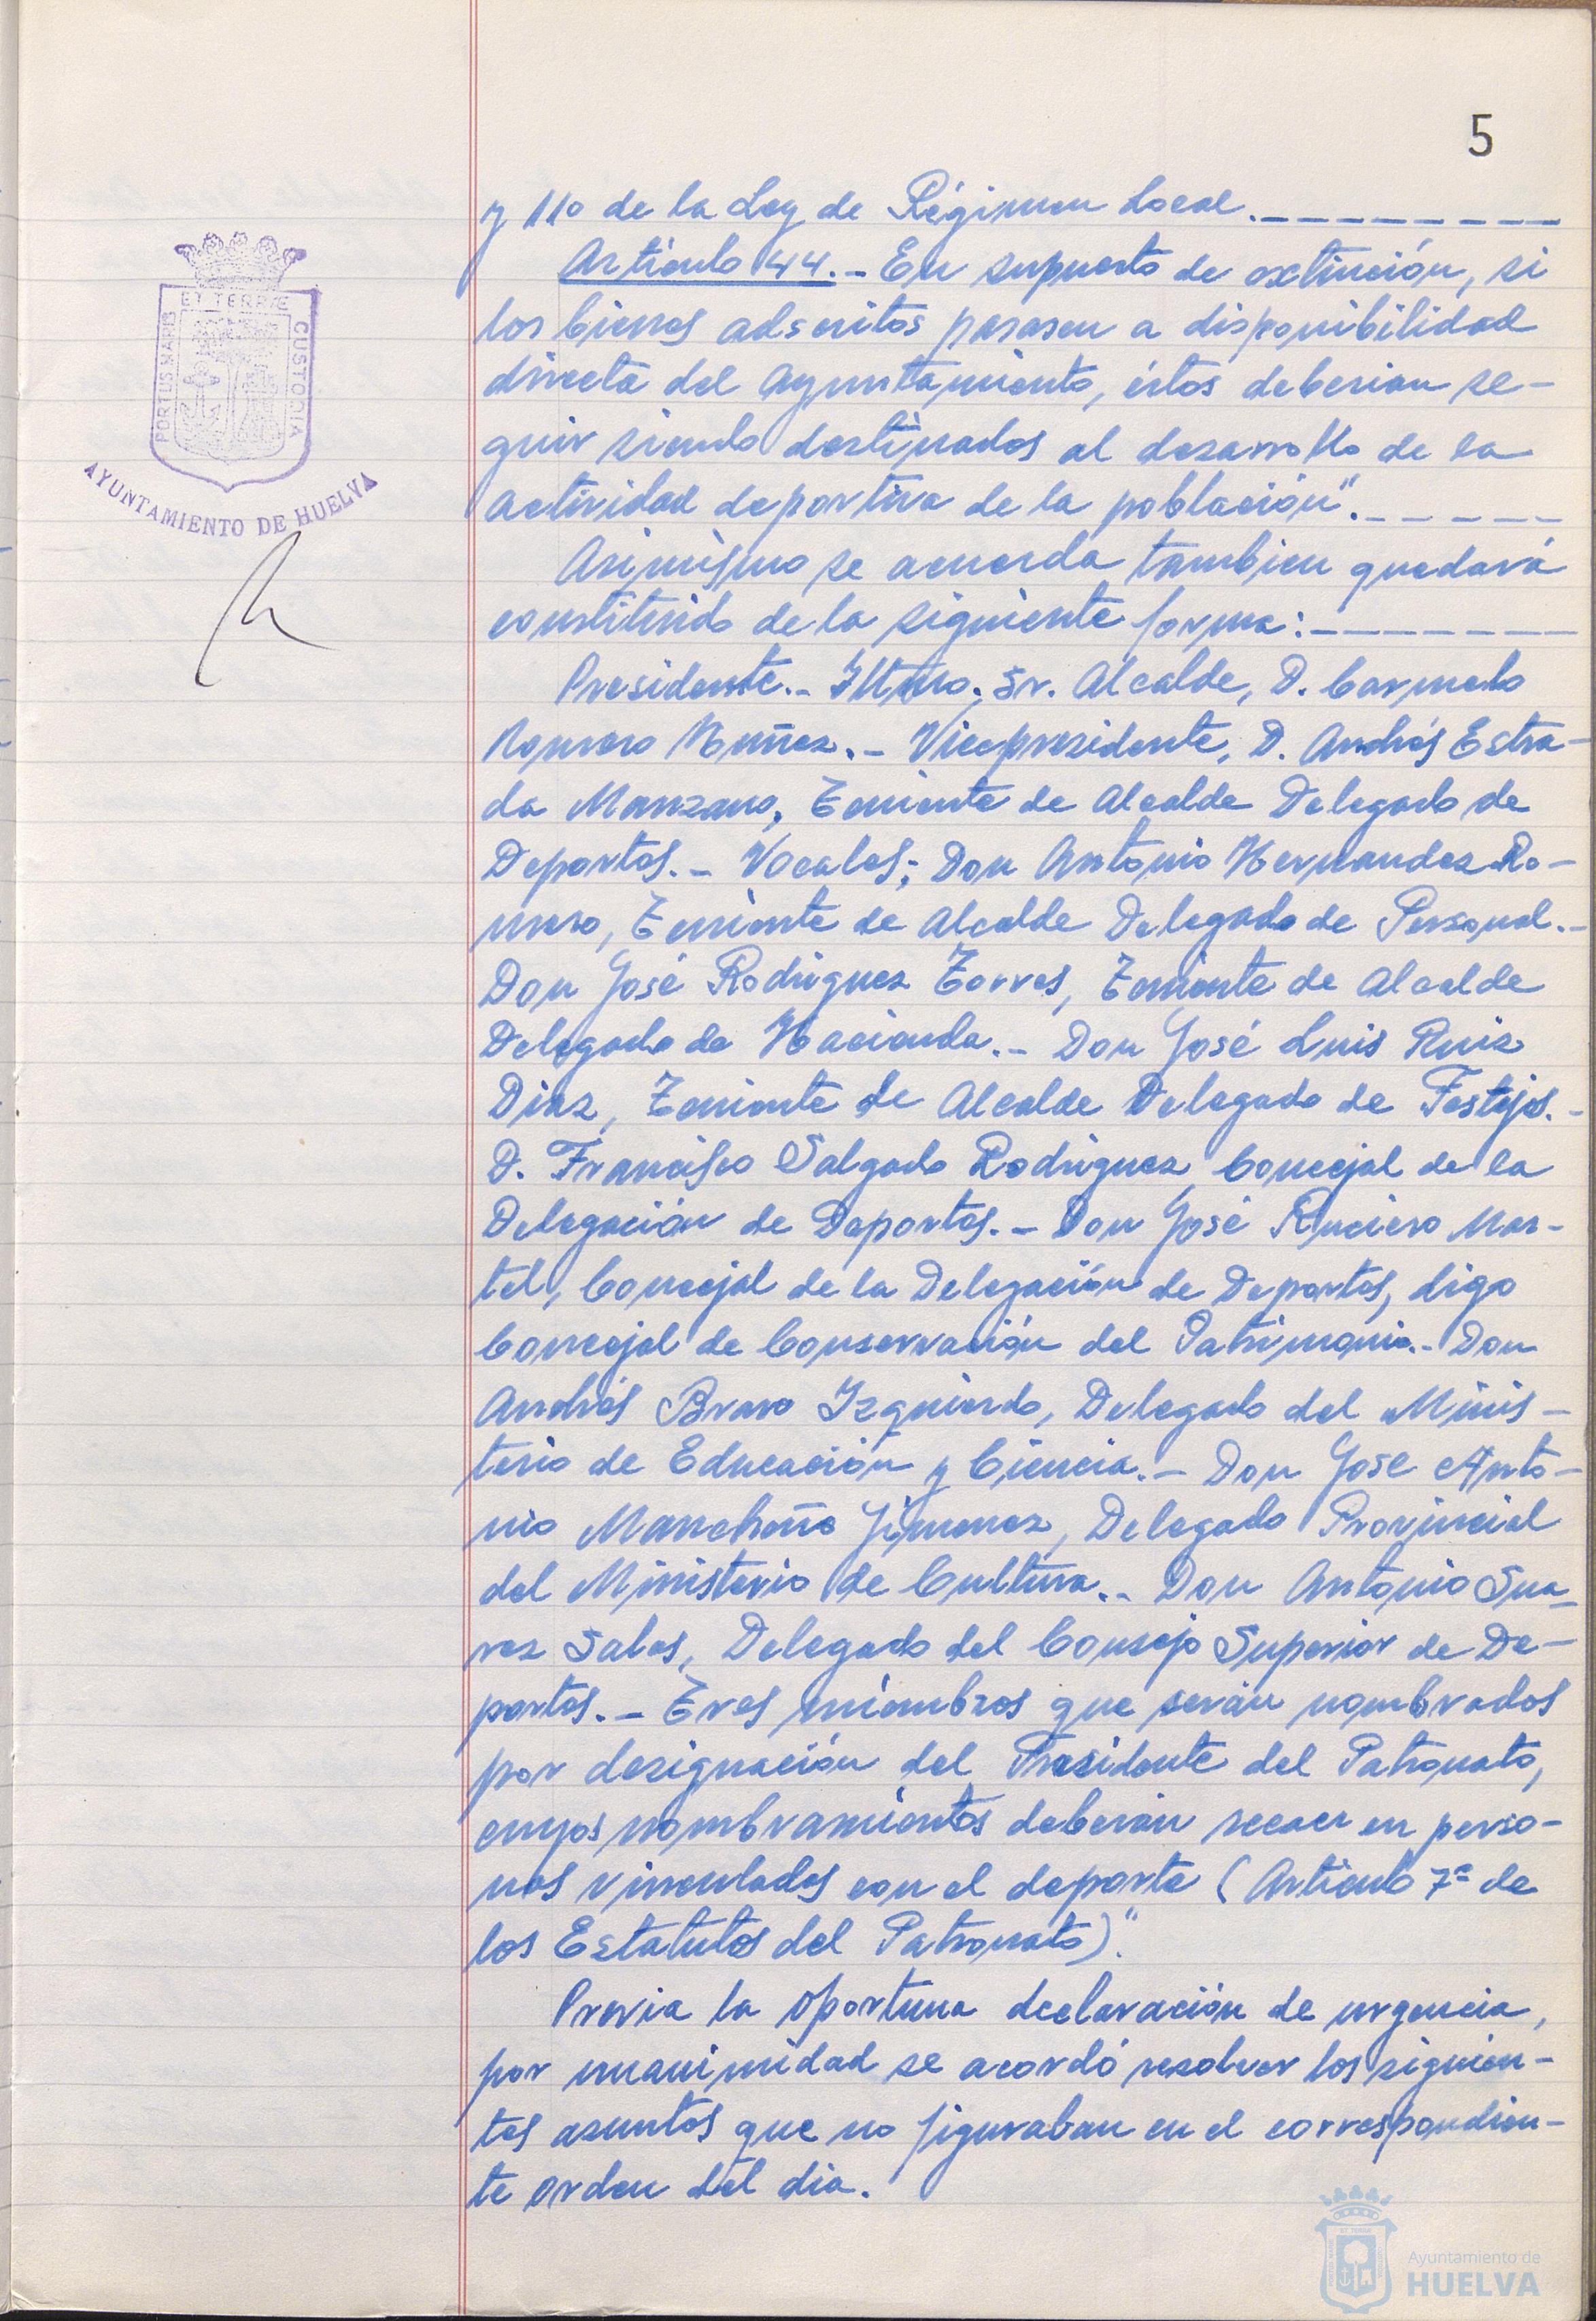 5
y 11º de la Ley de Régimen Local.
Artículo 44.- En supuesto de extinción, si
los bienes adscritos pasasen a disponibilidad
directa del Ayuntamiento, éstos deberian se-
guir siendo destinados al desarrollo de la
actividad deportiva de la población".
Asimismo se acuerda tambien quedará
constituido de la siguiente forma:
Presidente.- Iltmo. Sr. Alcalde, D. Carmelo
Romero Nuñez.- Vicepresidente, D. Andrés Estra-
da Manzano, Teniente de Alcalde Delegado de
Deportes.- Vocales; Don Antonio Hernandez Ro-
mero, Teniente de Alcalde Delegado de Personal.-
Don José Rodriguez Torres, Teniente de Alcalde
Delegado de Hacienda.- Don José Luis Ruiz
Diaz, Teniente de Alcalde Delegado de Festejos.-
D. Francisco Salgado Rodriguez, Concejal de la
Delegación de Deportes.- Don José Ruciero Mar-
tel, Concejal de la Delegación de Deportes, digo
Concejal de Conservación del Patrimonio.- Don
Andrés Bravo Izquierdo, Delegado del Minis-
terio de Educación y Ciencia.- Don Jose Anto-
nio Mancheño Jimenez, Delegado Provincial
del Ministerio de Cultura.- Don Antonio Sua-
rez Sales, Delegado del Consejo Superior de De-
portes.- Tres miembros que serán nombrados
por designación del Presidente del Patronato,
cuyos nombramientos deberán recaer en perso-
nas vinculadas con el deporte (Artículo 7º de
los Estatutos del Patronato)".
Previa la oportuna declaración de urgencia,
por unanimidad se acordó resolver los siguien-
tes asuntos que no figuraban en el correspondien-
te orden del dia.
ET TERRAE
PORTUS MARIS
CUSTODIA
AYUNTAMIENTO DE HUELVA
Ayuntamiento de
HUELVA